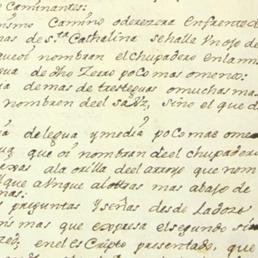 Caminantes:
ismo Camino oderezera enfrente d
nas de s.ta Cathalina se halle un ojo de
que oi nombran el chupadero en la mis
gua de dho Zerro poco mas o menos:
ia de mas de tres leguas o muchas ma
nombron de el sauz, sino el que d
ia de legua y media poco mas o me
que oi nombran de el chupadero
as ala orilla de el arroyo que nom
que aunque al otras mas abajo de
nas.
s preguntas y señas desde la doze
is mas que expresa el segundo si
en el esCripto presentado, que